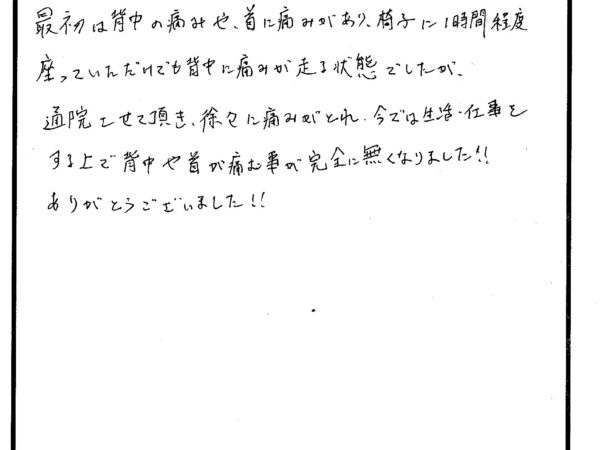 最初は背中の痛みや、首に痛みがあり、椅子に1時間程度
座っていただけでも背中に痛みが走る状態でしたが、
通院させて頂き、徐々に痛みがとれ、今では生活・仕事を
する上で背中や首が痛む事が完全に無くなりました!!
ありがとうございました!!